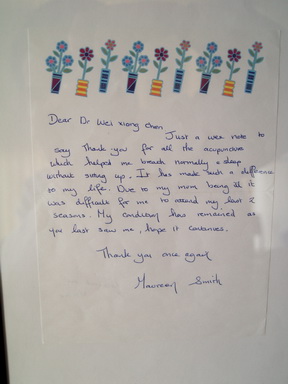 Dear Dr Wei Xiong Chen
Just a wee note to
say Thank you for all the acupuncture
which helped me breath normally & sleep
without sitting up. It has made such a difference
to my life. Due to my mum being ill it
was difficult for me to attend my last 2
seasons. My condition has remained as
you last saw me, hope it continues.
Thank you once again
Maureen Smith